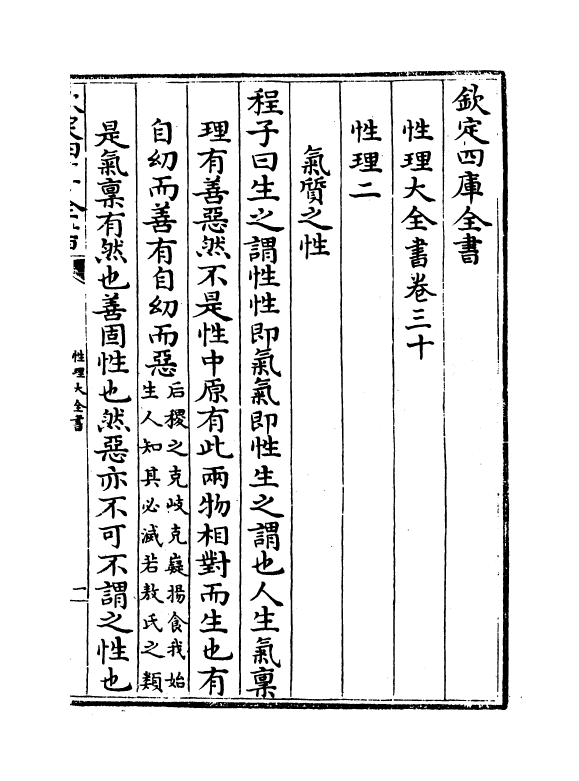 欽定四庫全書
性理大全書卷三十
性理二
氣質之性
程子曰生之謂性性即氣氣即性生之謂也人生氣稟
理有善惡然不是性中原有此兩物相對而生也有
自幼而善有自幼而惡后稷之克岐克嶷揚食我始
生人知其必滅若敖氏之類
是氣稟有然也善固性也然惡亦不可不謂之性也
性理大全書
一